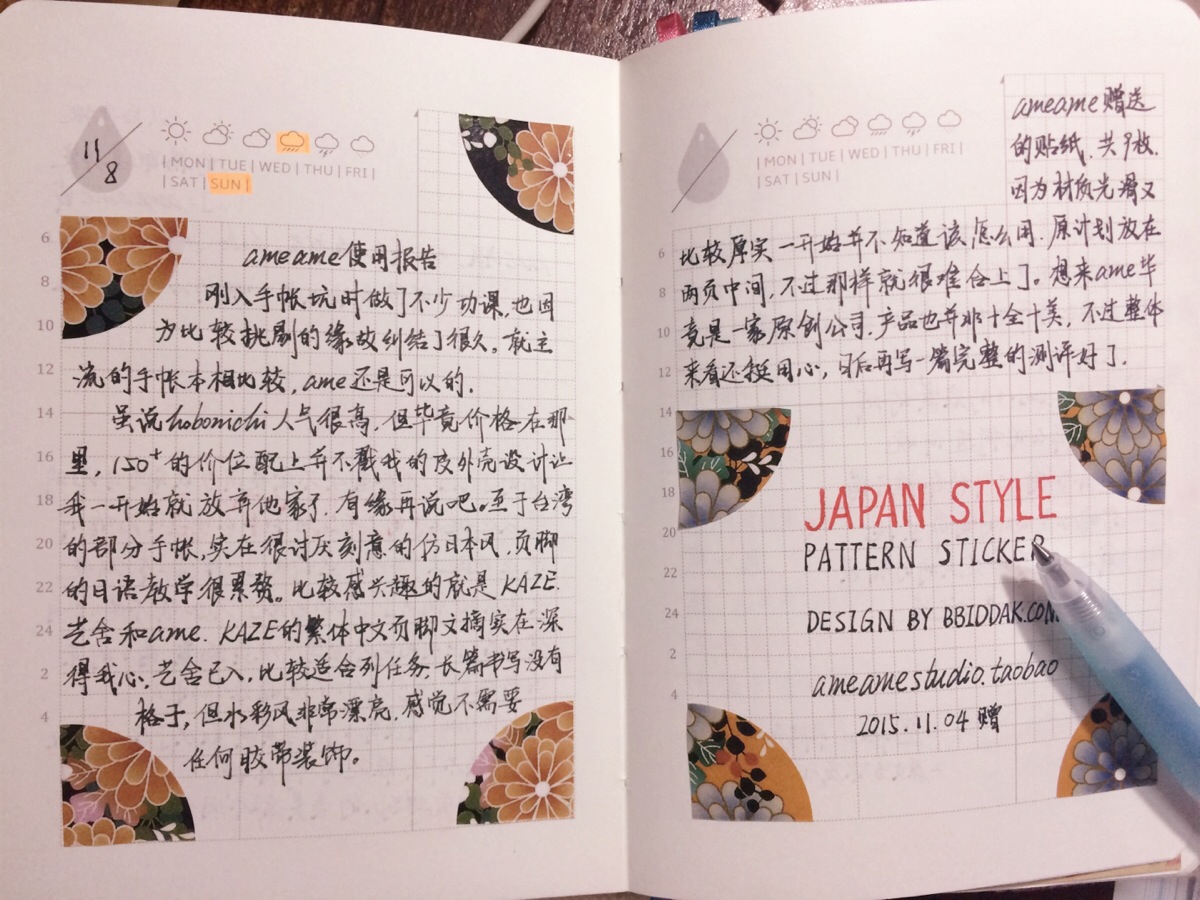 11/8
| MON | TUE | WED | THU | FRI |
| SAT | SUN |
6
8
10
12
14
16
18
20
22
24
2
4
ameame使用报告
刚入手帐坑时做了不少功课,也因
为比较挑剔的缘故纠结了很久,就主
流的手帐本相比较,ame还是可以的.
虽说hobonichi人气很高,但毕竟价格在那
里,150+的价位配上并不戳我的皮外壳设计让
我一开始就放弃他家了,有缘再说吧。至于台湾
的部分手帐,实在很讨厌刻意的仿日本风,页脚
的日语教学很累赘。比较感兴趣的就是KAZE.
艺舍和ame. KAZE的繁体中文页脚文摘实在深
得我心.艺舍已入,比较适合列任务.长篇书写没有
格子,但水彩风非常漂亮.感觉不需要
任何胶带装饰。
| MON | TUE | WED | THU | FRI |
| SAT | SUN |
6
8
10
12
14
16
18
20
22
24
2
4
ameame赠送
的贴纸.共9枚.
因为材质光滑又
比较厚实一开始并不知道该怎么用.原计划放在
两页中间,不过那样就很难合上了。想来ame毕
竟是一家原创公司.产品也并非十全十美,不过整体
来看还挺用心,日后再写一篇完整的测评好了.
JAPAN STYLE
PATTERN STICKER
DESIGN BY BBIDDAK.COM
ameamestudio.taobao
2015.11.04 赠